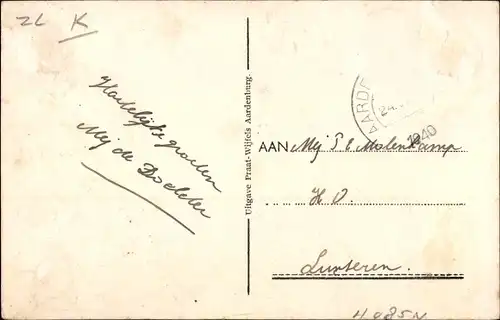 ZL K
Hartelijke groeten
Mej de Doelder
Uitgave Praat-Wijfels Aardenburg.
AARDE
24.
1940
AAN Mej S E Molenkamp
H.O.
Lunteren.
4085N